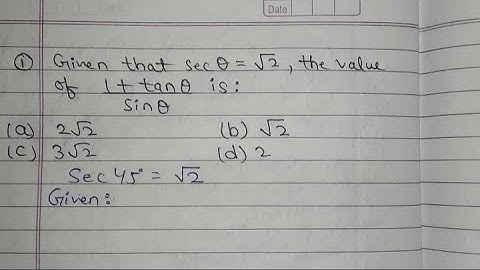 Date
① Given that sec θ = √2, the value
of 1 + tan θ is:
sin θ
(a) 2√2 (b) √2
(c) 3√2 (d) 2
Sec 45° = √2
Given: